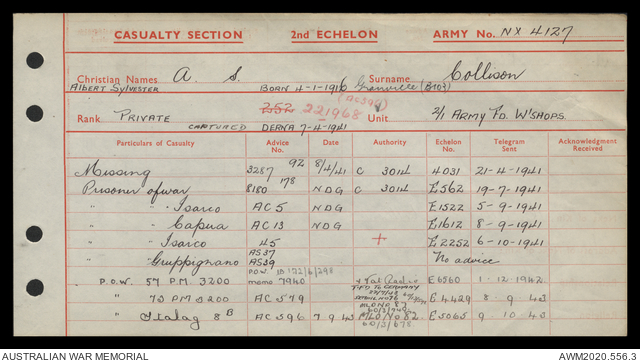 CASUALTY SECTION 2nd ECHELON ARMY No. NX 4127
Christian Names A. S. Surname Collison
ALBERT SYLVESTER BORN 4-1-1916 GRANVILLE (B103)
Rank PRIVATE 252 221968 Unit 2/1 ARMY FD. W'SHOPS.
CAPTURED DERNA 7-4-1941
Particulars of Casualty Advice No. Date Authority Echelon No. Telegram Sent Acknowledgment Received
Missing 3287 92 8/4/41 C 3014 4031 21-4-1941
Prisoner of war 8180 178 NDG C 3014 E562 19-7-1941
" " Isarco AC 5 NDG E1522 5-9-1941
" " Capua AC 13 NDG E1612 8-9-1941
" " Isarco 45 + E2252 6-10-1941
" Gruppignano AS37 AS39 No advice
P.O.W. 57 P.M. 3200 memo 7940 Radio E6560 1.12.1942
" 73 PM 3200 AC 579 E4429 8 9 43
" Stalag 8B AC 596 7 9 43 E5065 9 10 43
AUSTRALIAN WAR MEMORIAL AWM2020.556.3